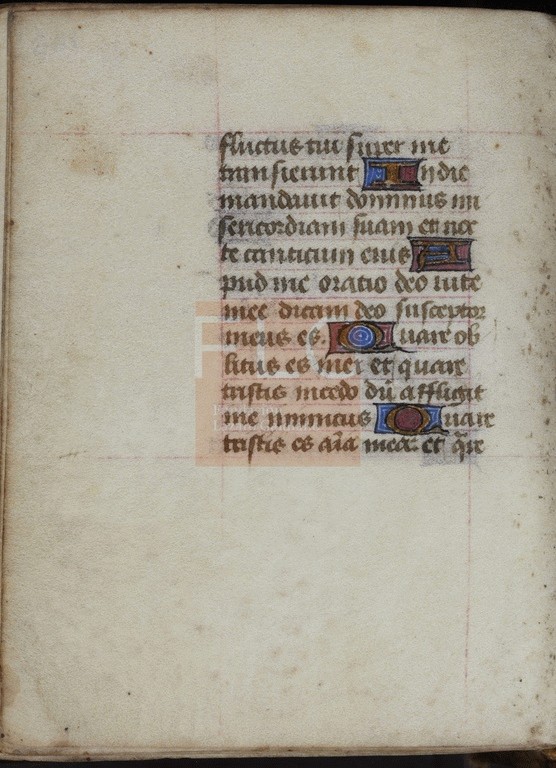 fluctus tui super me
transierunt In die
mandavit dominus mi
sericordiam suam et noc
te canticum eius A
pud me oratio deo vite
mee dicam deo susceptor
meus es. Quare ob
litus es mei et quare
tristis incedo dū affligit
me inimicus Quare
tristis es aīa mea: et q̄re
FLG